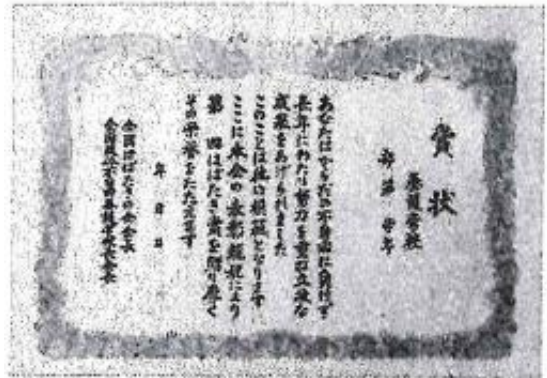 賞状
養護学校
部第 学年
あなたはからだの不自由に負けず
長年にわたり努力を重ね立派な
成果をあげられました
このことは他の模範となります
ここに本会の表彰規定により
第 回はばたき賞を贈り厚く
その栄誉をたたえます
年 月 日
全国はばたきの会会長